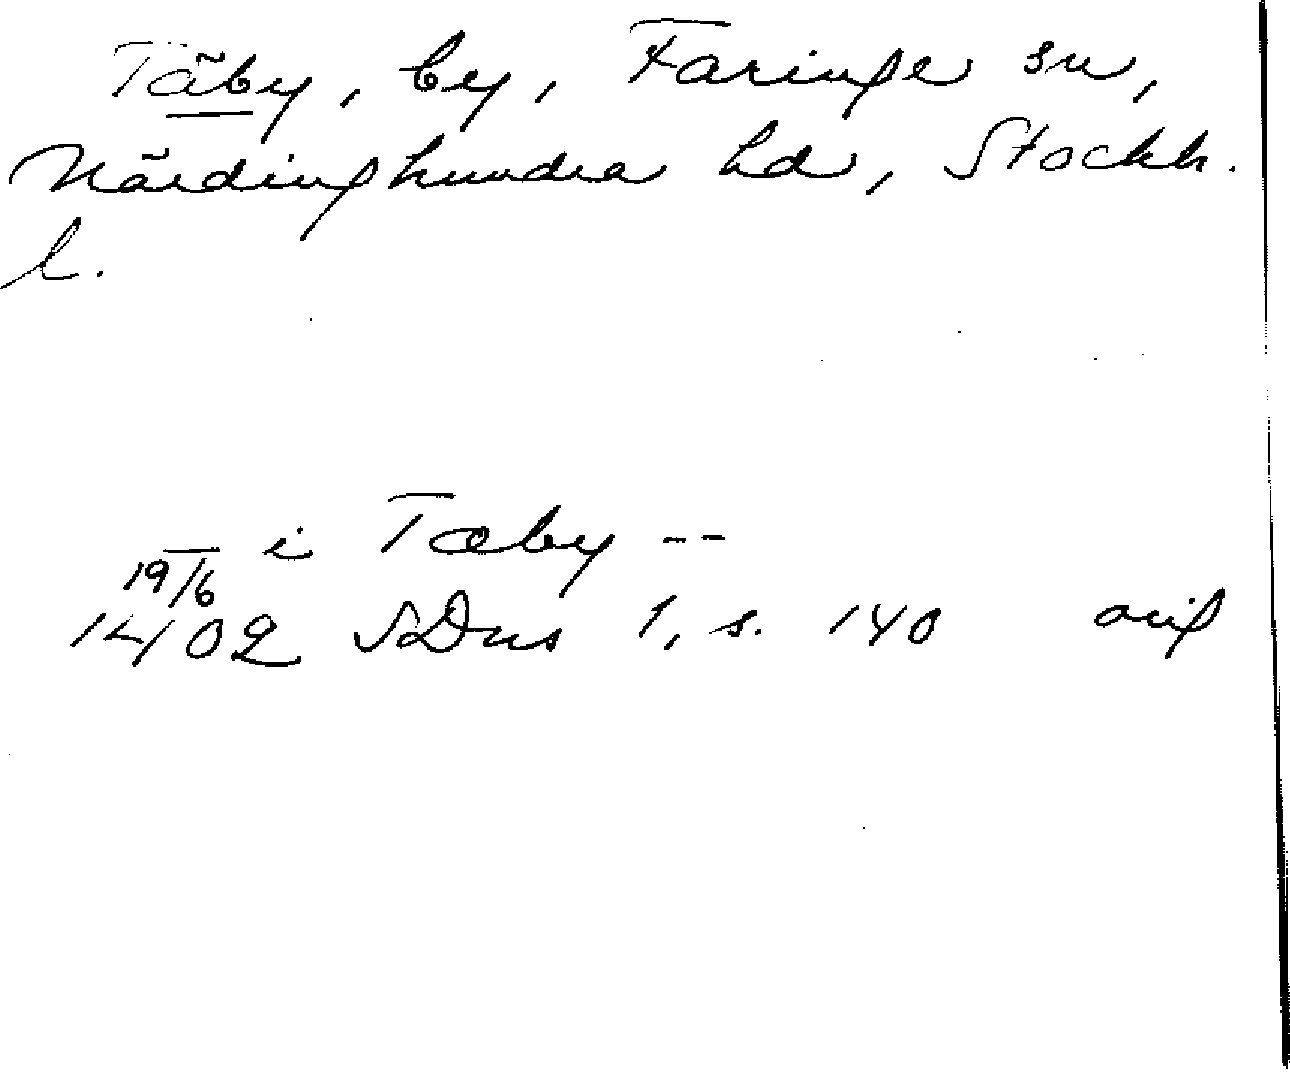 Täby, by, Faringe sn,
Närdinghundra hd, Stockh.
l.
i Tæby --
19/6
1402 SDns 1, s. 140 orig